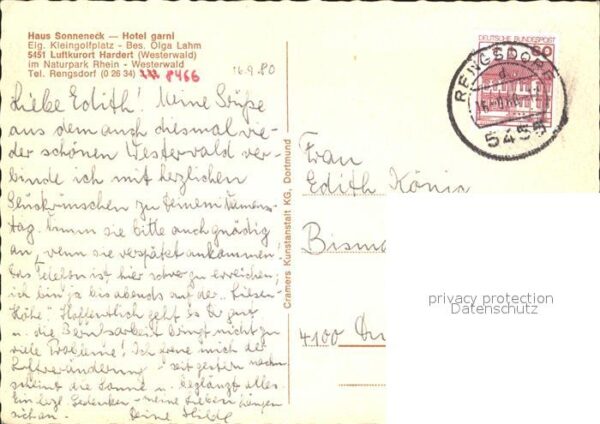 Haus Sonneneck — Hotel garni
Eig. Kleingolfplatz - Bes. Olga Lahm
5451 Luftkurort Hardert (Westerwald)
im Naturpark Rhein - Westerwald
Tel. Rengsdorf (0 26 34) 8466
16.9.80
Liebe Edith! Meine Grüße
aus dem auch diesmal wie-
der schönen Westerwald ver-
binde ich mit herzlichen
Glückwünschen zu Deinem Namens-
tag. Nimm sie bitte auch gnädig
an, wenn sie verspätet ankommen!
Das Telefon ist hier schwer zu erreichen;
ich bin ja bis abends auf der „Liesen-
Höhe". Hoffentlich geht es Dir gut
u. die Berufsarbeit bringt nicht zu
viele Probleme! Ich freue mich der
Luftveränderung - seit gestern nachm.
scheint die Sonne u. beglänzt alles.
Ein herzl. Gedenken - meine Lieben
sich an. Deine Hilde
Cramers Kunstanstalt KG, Dortmund
DEUTSCHE BUNDESPOST
60
RENGSDORF
5455
Frau
Edith König
Bisma
4100 Du
privacy protection
Datenschutz